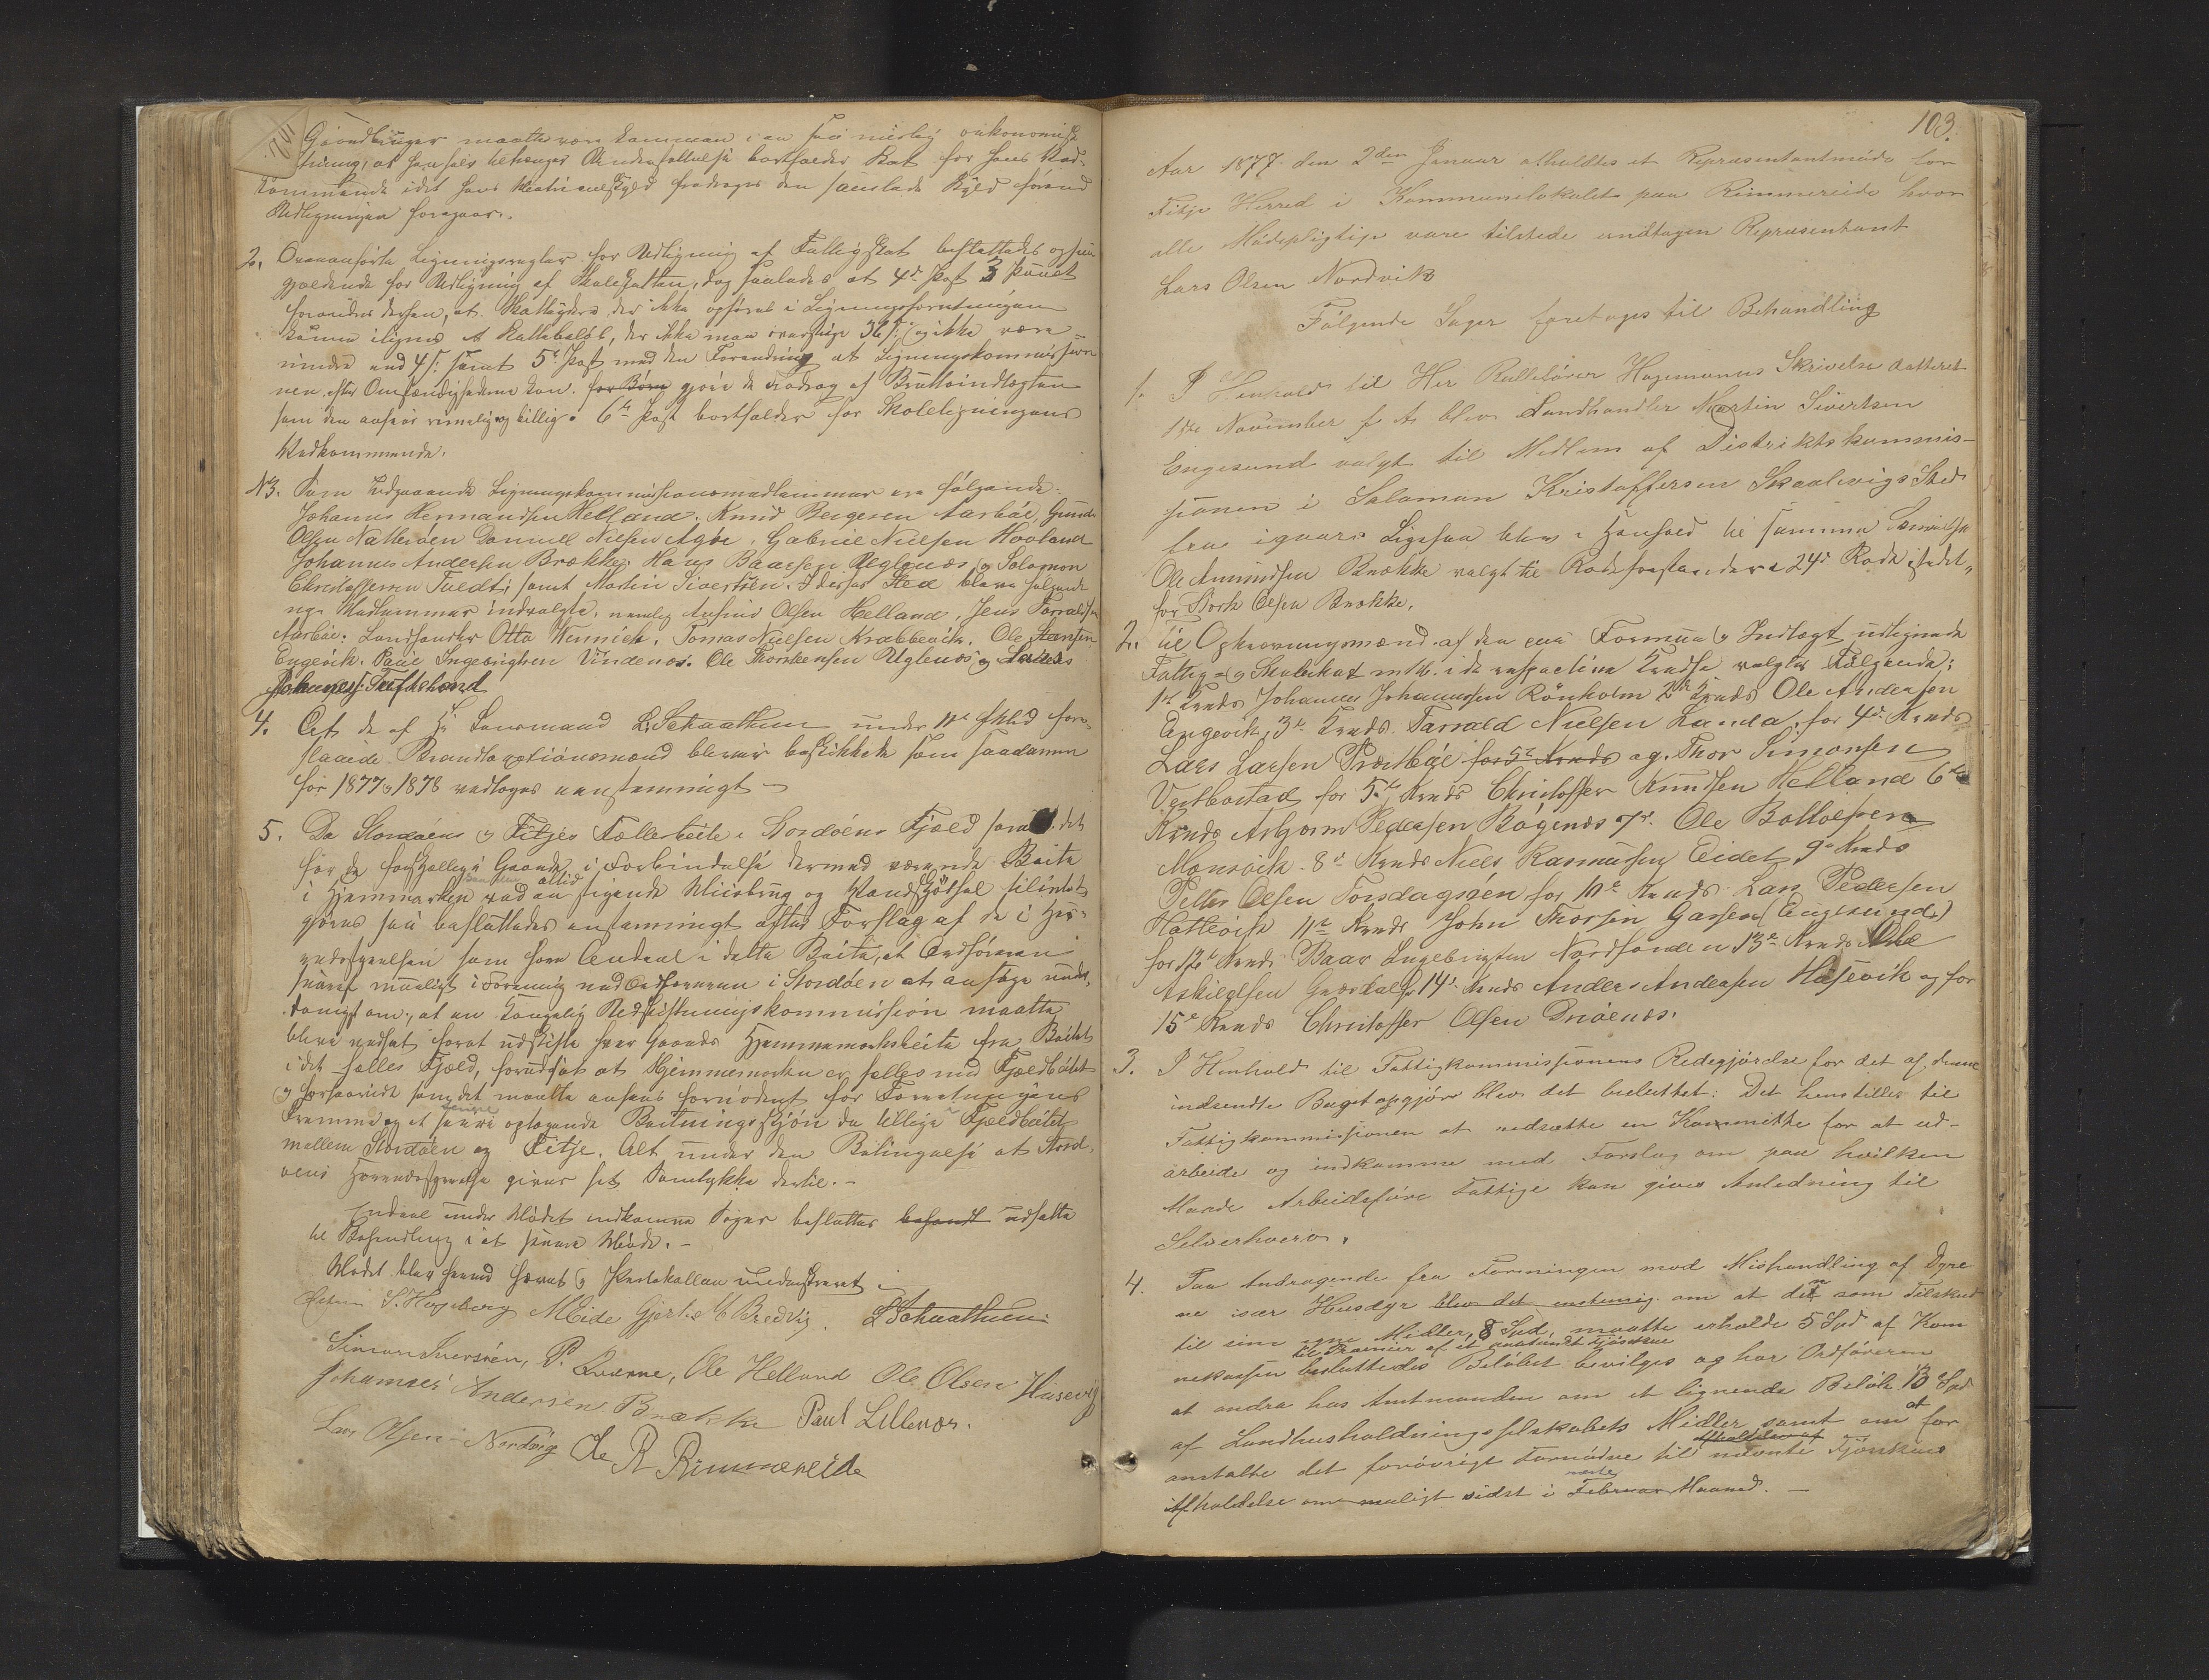 Gaardbruger maatte være kommen i en saa mislig oekonomisk
Stilling, at hans helt betrenges Understøttelse bortfalder Skat for hans Ved-
kommende idet hans Matriculskyld fradrages den samlede Skyld førend
Udligningen foregaar.
2. Ovenanførte Ligningsregler for Udligning af Fattigskat besluttedes ogsaa
gjældende for Udligning af Skoleskatten, dog saaledes at 4de Post 3 Punct
forandres derhen, at Skatteydere der ikke opføres i Ligningsforretningen
kunne ilignes et Skattebeløb, der ikke maa overstige 36 s: og ikke være
mindre end 4 s: samt 5te Post med den Forandring at Ligningskommissio-
nen efter Omstændighederne kan for Børn gjøre de Fradrag af Bruttoindtægten
som den anseer rimelig og billig. 6te Post bortfalder for Skoleligningens
Vedkommende.
N3. Som Udgaaende Ligningskommissionsmedlemmer ere følgende:
Johannes Hermandsen Helland. Knud Bergesen Aarbøe, Gunder
Olsen Nattersøen Daniel Nielsen Agøe, Gabriel Nielsen Hovland
Johannes Andersen Brække, Hans Baarsen Uglenæs og Solomon
Christoffersen Tvedt, samt Martin Sivertsen. I disses Sted bleve følgende
nye Medlemmer indvalgte, nemlig Anfind Olsen Helland, Jens Torvaldsen
Aarbøe. Landhandler Otto Wennich, Tomas Nielsen Krabbevik. Ole Hansen
Engevik. Paul Ingebrigtsen Vindenæs. Ole Thorstensen Uglenæs og Lars
Johannes: Tufteland
4. At de af Hr Lensmand L. Schaathun under 11te f Md fore-
slaaede Brandtaxtionsmænd bleve beskikkede som saadanne
for 1877 & 1878 vedtoges eenstemmigt
5. Da Stordøens & Fitjes Fællesbeite i Stordøens Fjeld samt det
for de forskjellige Gaarde i Forbindelse dermed værende Beite
i Hjemmarken ved en altid stigende Misbrug og Vandskjøtsel tilintet
gjøres saa besluttedes eenstemmigt efter Forslag af de i Her-
redsstyrelsen som have Andeel i dette Beite, at Ordføreren
snarest mueligt i Forening med Ordføreren i Stordøen at ansøge under-
danigst om, at en Kongelig Udskiftningskommission maatte
blive nedsat forat udskifte hver Gaards Hjemmemarksbeite fra Beitet
i det fælles Fjeld, forudsat at Hjemmemarken er fælles med Fjeldbeitet
og forsaavidt som det maatte ansees fornødent for Forretningens
Fremme og at samme optagende Beitningsskjøn da tillige Fjeldbeitet
mellem Stordøen og Fitje. Alt under den Betingelse at Stord-
øens Herredsstyrelse giver sit Samtykke dertil.
Endeel under Mødet indkomne Sager besluttes behandl udsatte
til Behandling i et senere Møde.
Mødet blev herved hævet & Protokollen underskrevet
S. Hageberg M Eide Gjert M Bredvig. L Schaathuen
Simon Iversøen, P. Qværne, Ole Helland Ole Olsen Husevig
Johannes Andersen Brække Paul Lillenæs.
Lars Olsen Nordvig Ole R Rimmereide

103.
Aar 1877 den 2den Januar afholdtes et Repræsentantmøde for
Fitje Herred i Kommunelokalet paa Rimmereide hvor
alle Mødepligtige vare tilstede undtagen Repræsentant
Lars Olsen Nordvik
Følgende Sager foretoges til Behandling
1. I Henhold til Her Rulleførar Hagemanns Skrivelse datteret
1ste November f A. blev Landhandler Martin Sivertsen
Engesund valgt til Medlem af Distriktskommis-
sionen i Salamon Kristoffersen Skaalevigs Sted
Ligesaa blev i Henhold til samme Skrivelse
Ole Amundsen Brække valgt til Rodeforstander i 24de Rode istedet-
for Stork Olsen Brække.
2. Til Opkrævningsmænd af den paa Formue & Indtægt udlignede
Fattig- og Skoleskat m. M. i de respective Kredse valgtes Følgende:
1ste Kreds Johannes Johannessen Rønholm 2den Kreds Ole Andersen
Engevik, 3de Kreds. Tarvald Nielsen Landa, for 4de Kreds
Lars Larsen Prestbøe for 5te Kreds og Thor Simonsen
Vestbøstad for 5te Kreds Christoffer Knudsen Helland 6te
Kreds Asbjørn Pedersen Bøgenæs 7de Ole Bottolfsen
Monsvik. 8de Kreds Niels Rasmussen Eidet, 9de Kreds
Petter Olsen Torsdagsøen for 10de Kreds Lars Pedersen
Hattevik 11te Kreds John Thorsen Garsen (Engesund)
for 12te Kreds Baar Ingebrigtsen Nordfonden 13de Kreds Ole
Askildsen Gærdal for 14de Kreds Anders Andersen Husevik og for
15de Kreds Christoffer Olsen Drioenæs.
3. I Henhold til Fattigkommissionens Redegjørelse for det af denne
indsendte Bugetopgjør blev det besluttet: Det henstilles til
Fattigkommissionen at nedsætte en Kommitte for at ud-
arbeide og indkomme med Forslag om paa hvilken
Maade Arbeidsføre Fattige kan gives Anledning til
Selverhverv.
4. Paa Andragende fra Foreningen mod Mishandling af Dyre
ne især Husdyr blev det enstemig om at den som Tilskud
til sine egne Midler, 8 Spd, maatte erholde 5 Spd af Kom
nekassen til Præmier af et anstændt Fjøsskue besluttedes Beløbet bevilges og har Ordføreren
at andra hos Amtmanden om et lignende Beløb 13 Spd
af Landhusholdningsselskabets Midler samt om at for
anstalte det forøvrigt Fornødne til Afholdelse af nævnte Fjøsskues
Afholdelse om muligt sidst i næste Februar Maaned.